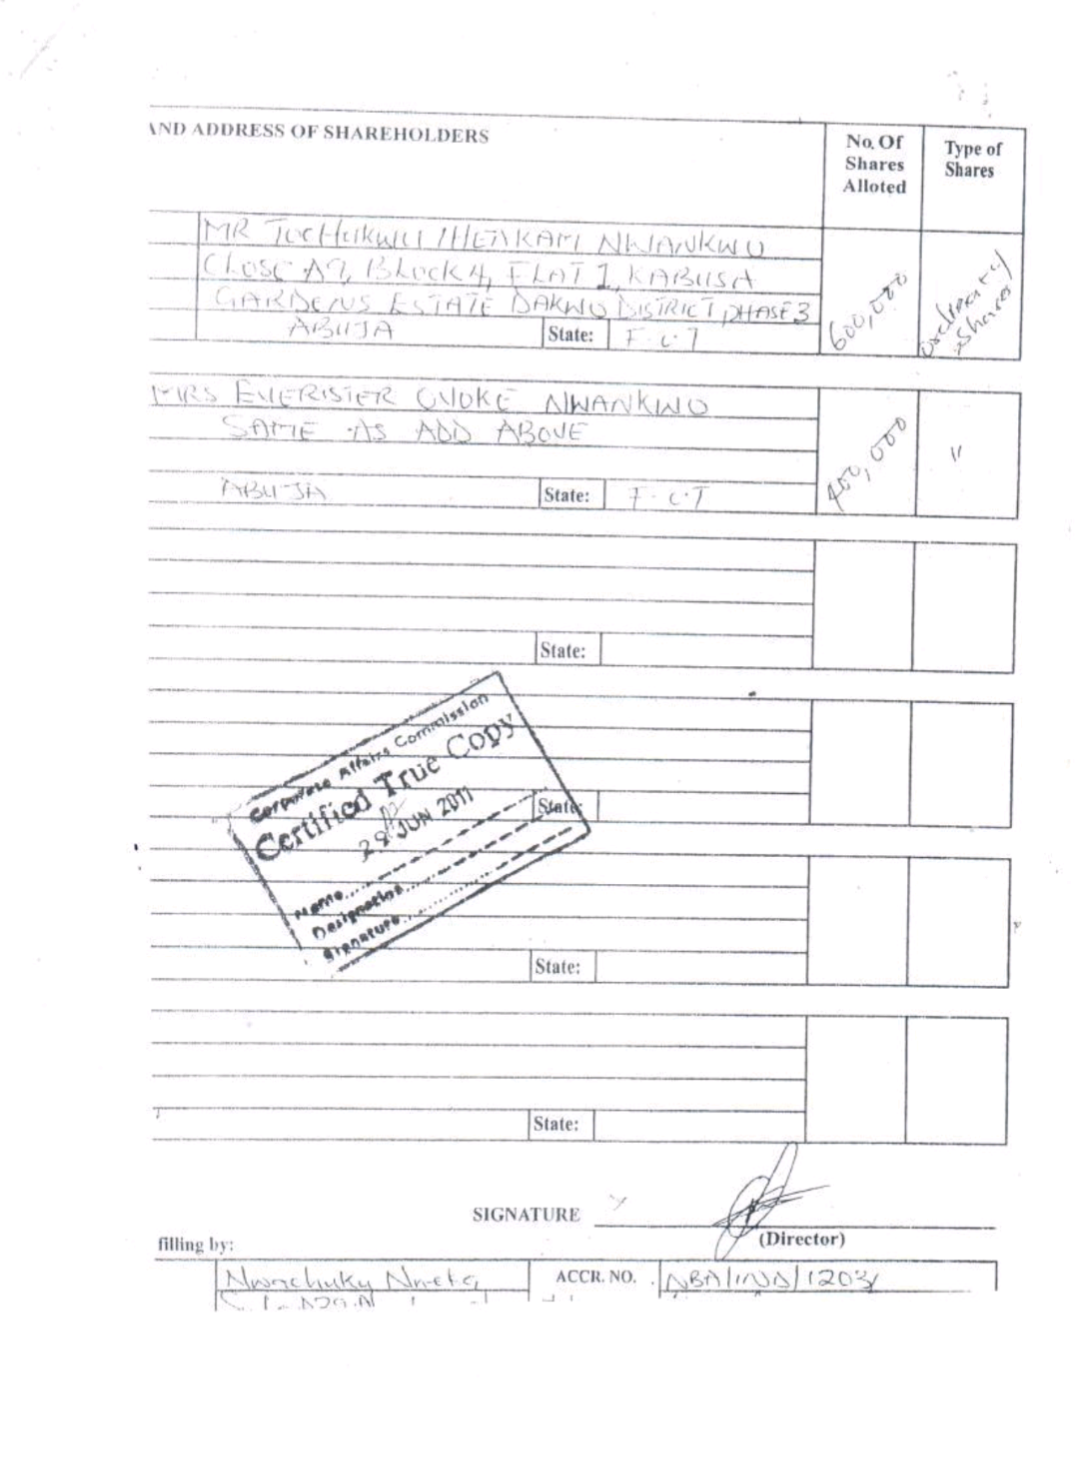 AND ADDRESS OF SHAREHOLDERS
No. Of Shares Alloted
Type of Shares
MR TOCHUKWU IHEAKAM NWANKWO
CLOSE A9, BLOCK 4, FLAT 1, KABUSA
GARDENS ESTATE DAKWO DISTRICT, PHASE 3
ABUJA State: F.C.T
600,000
ordinary shares
MRS EVERISTER OVOKE NWANKWO
SAME AS ADD ABOVE
ABUJA State: F.C.T
400,000
"
State:
Corporate Affairs Commission
Certified True Copy
29 JUN 2011
State:
Name
Designation
Signature
State:
State:
SIGNATURE
(Director)
filling by:
Nwachuku Nneta ACCR. NO.